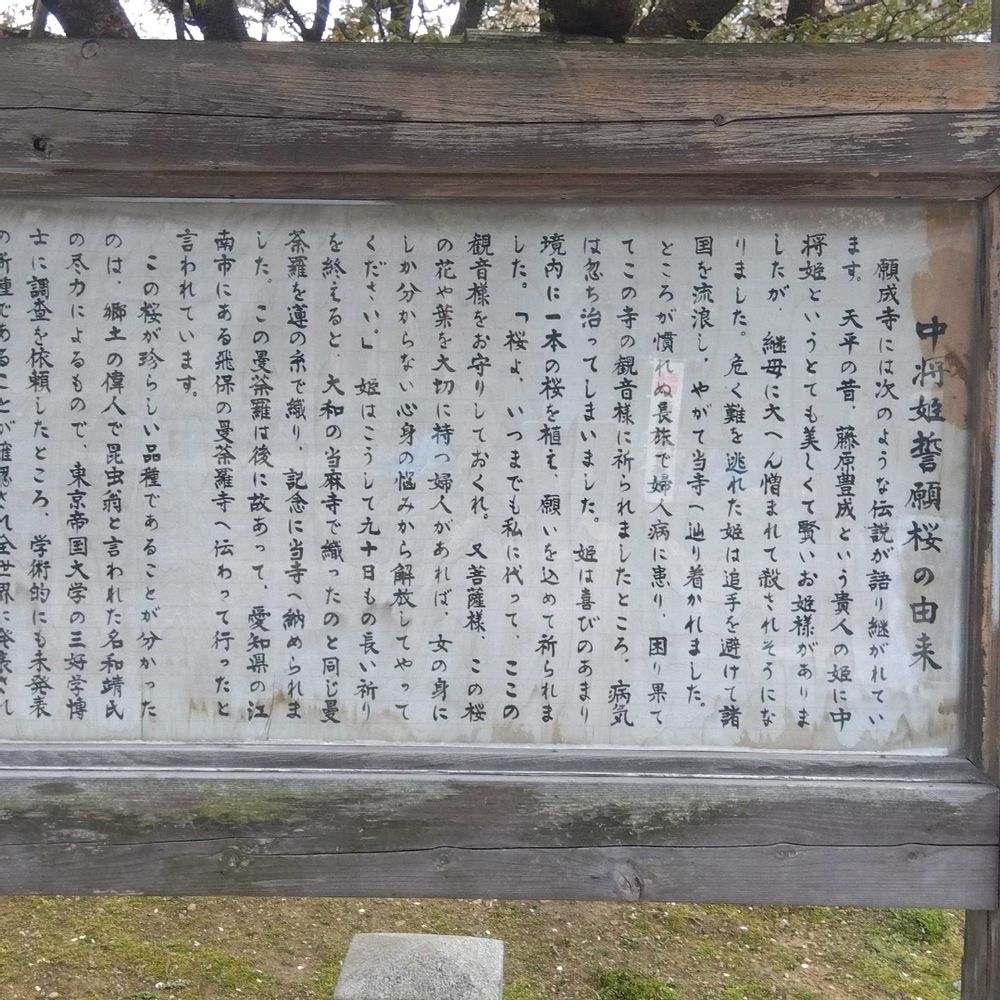 中将姫誓願桜の由来
願成寺には次のような伝説が語り継がれてい
ます。天平の昔、藤原豊成という貴人の姫に中
将姫というとても美しくて賢いお姫様がありま
したが、継母に大へん憎まれて殺されそうにな
りました。危く難を逃れた姫は追手を避けて諸
国を流浪し、やがて当寺へ辿り着かれました。
ところが慣れぬ長旅で婦人病に患り、困り果て
てこの寺の観音様に祈られましたところ、病気
は忽ち治ってしまいました。姫は喜びのあまり
境内に一本の桜を植え、願いを込めて祈られま
した。「桜よ、いつまでも私に代って、ここの
観音様をお守りしておくれ。又菩薩様、この桜
の花や葉を大切に持つ婦人があれば、女の身に
しか分からない心身の悩みから解放してやって
ください。」姫はこうして九十日もの長い祈り
を終えると、大和の当麻寺で織ったのと同じ曼
荼羅を蓮の糸で織り、記念に当寺へ納められま
した。この曼荼羅は後に故あって、愛知県の江
南市にある飛保の曼荼羅寺へ伝わって行ったと
言われています。
この桜が珍らしい品種であることが分かった
のは、郷土の偉人で昆虫翁と言われた名和靖氏
の尽力によるもので、東京帝国大学の三好学博
士に調査を依頼したところ、学術的にも未発表
の新種であることが確認され全世界に発表され